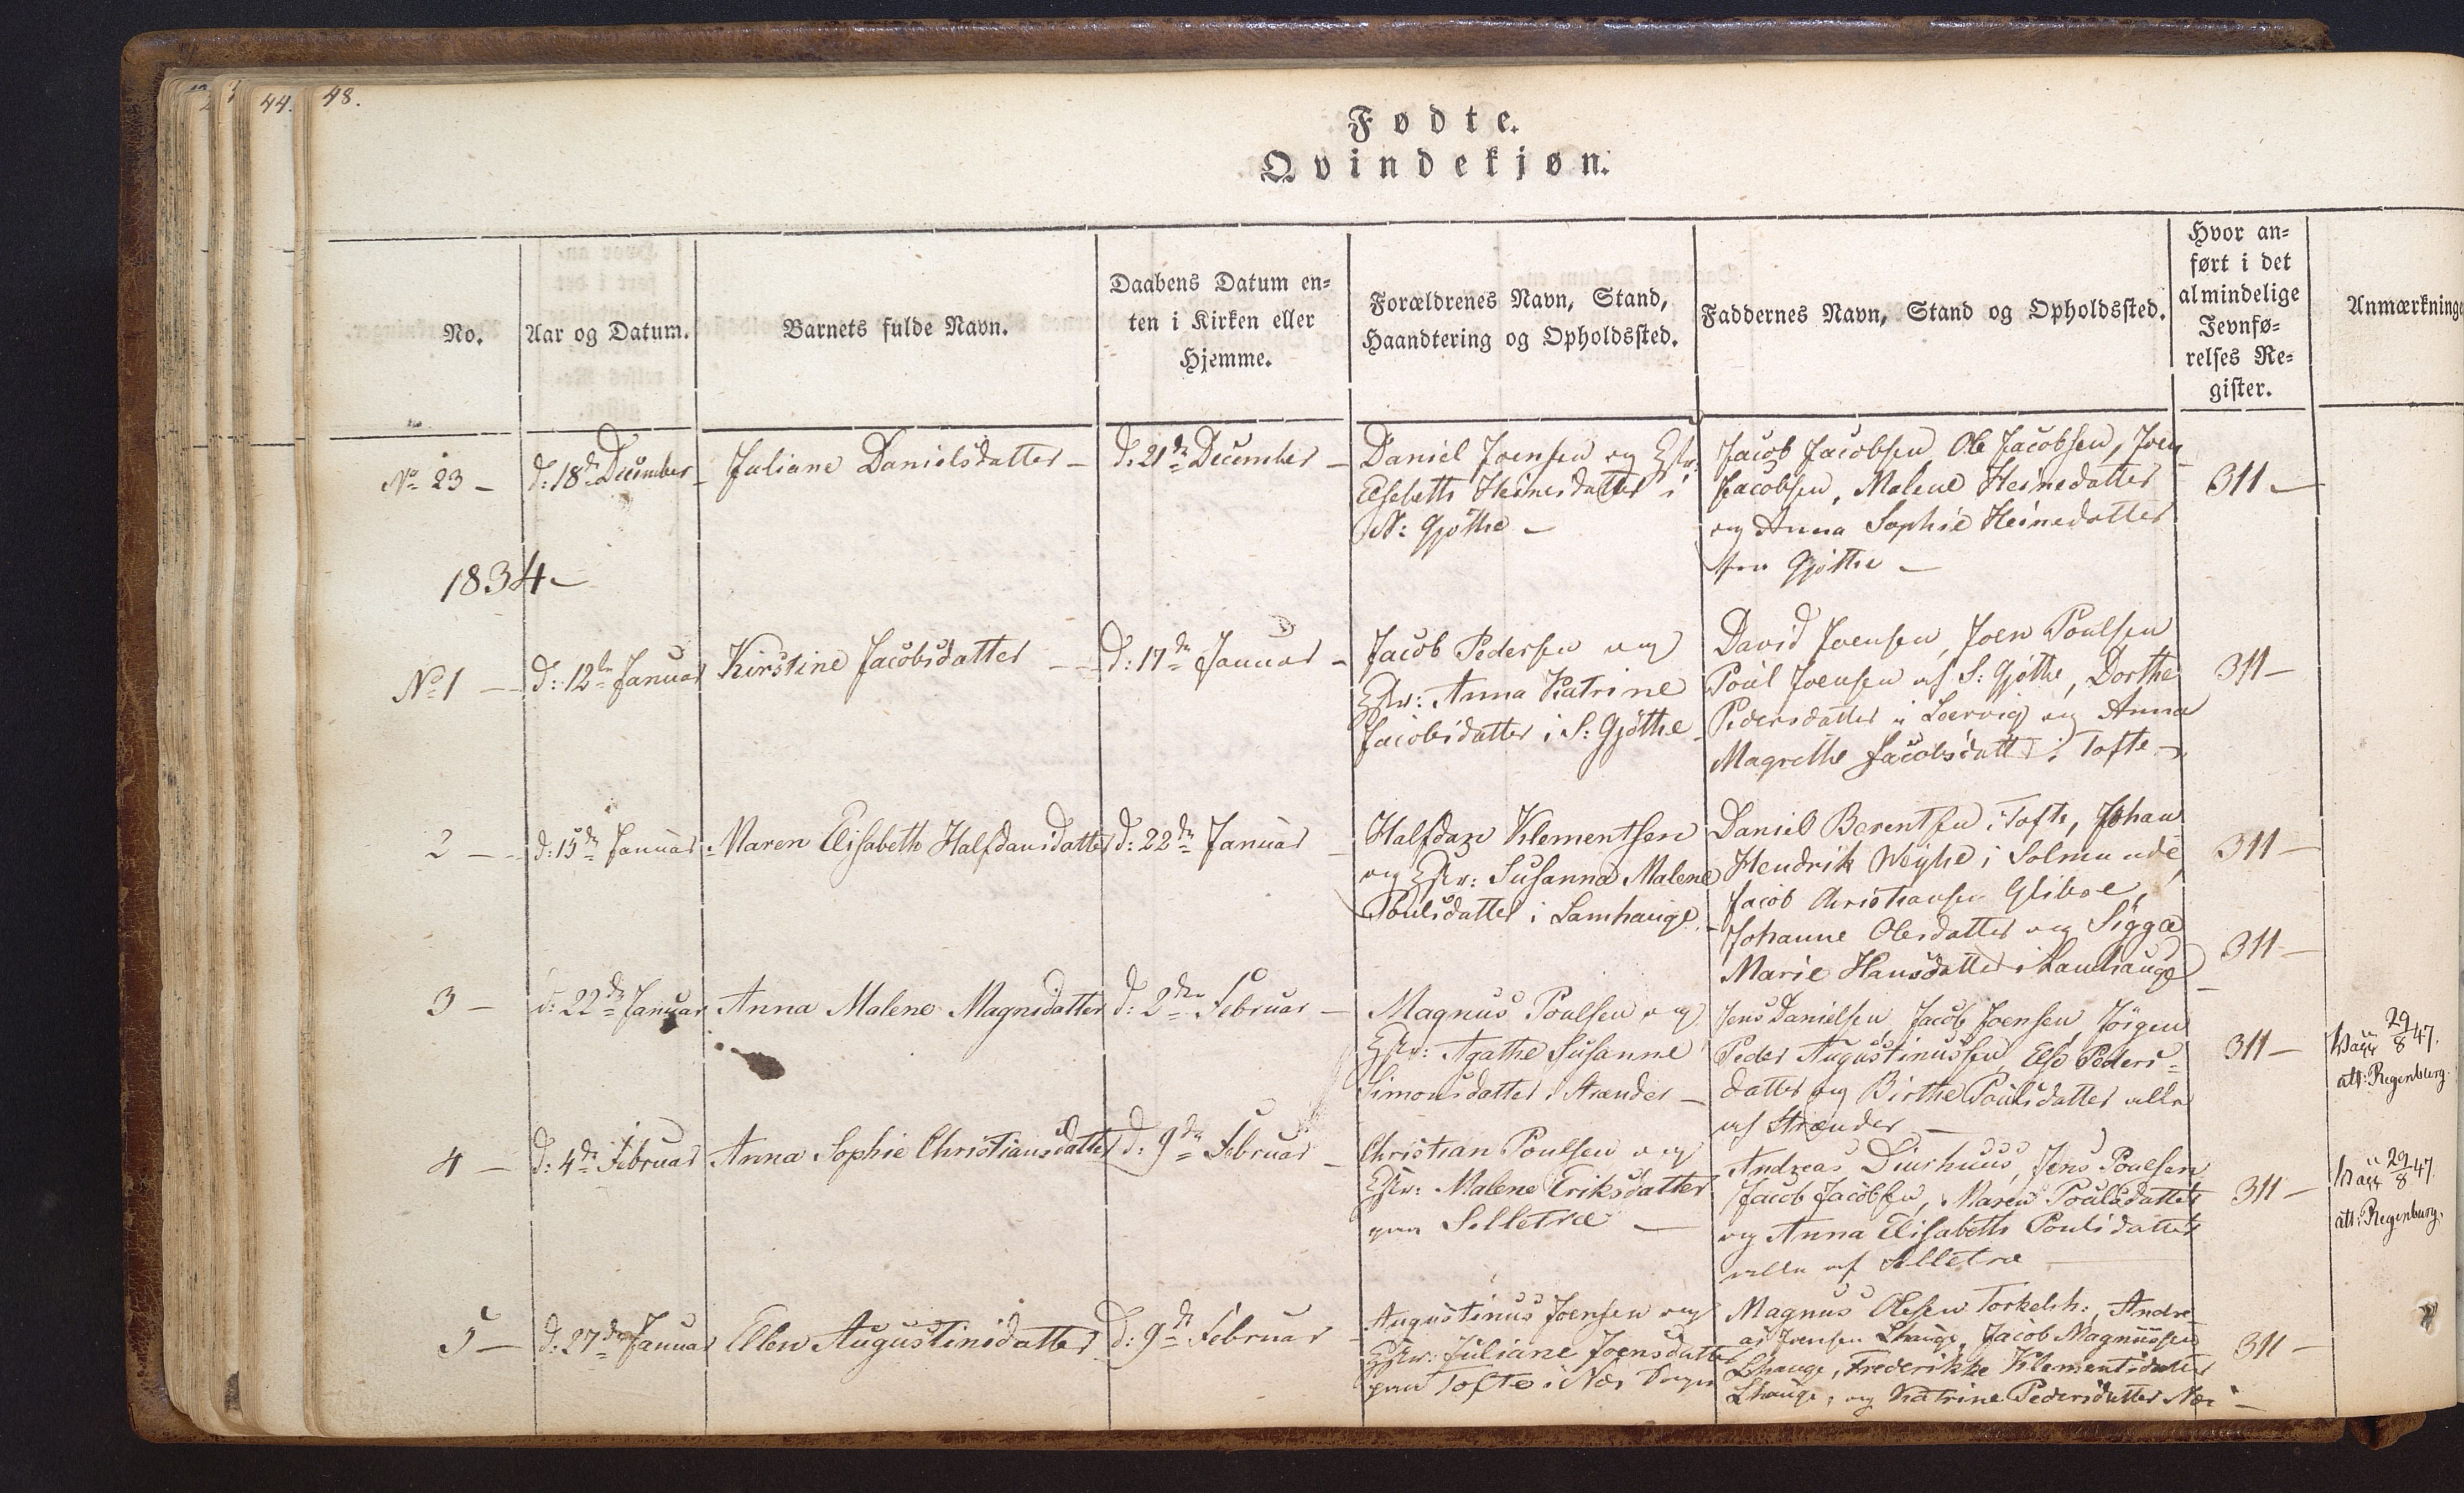 44.
48.
Fødte.
Qvindekjøn.
No.
Aar og Datum.
Barnets fulde Navn.
Daabens Datum en=
ten i Kirken eller
Hjemme.
Forældrenes Navn, Stand,
Haandtering og Opholdssted.
Faddernes Navn, Stand og Opholdssted.
Hvor an=
ført i det
almindelige
Jevnfø=
relses Re=
gister.
Anmærkninge
No 23 -
d: 18de December
Juliane Danielsdatter -
d: 21de December -
Daniel Joensen og Hstr:
Elsebeth Heinesdatter i
N: Gjøthe -
Jacob Jacobsen, Ole Jacobsen, Joen
Jacobsen, Malene Heinedatter
og Anna Sophie Heinedatter
fra Gjøthe -
311 -
1834 -
No 1 -
d: 12te Januar
Kirstine Jacobsdatter -
d: 17de Januar -
Jacob Pedersen og
Hstr: Anna Katrine
Jacobsdatter i S: Gjøthe -
David Joensen, Joen Poulsen
Poul Joensen af S: Gjøthe, Dorthe
Pedersdatter i Loervig og Anna
Magrethe Jacobsdatt: i Tofte -
311 -
2 -
d: 15de Januar -
Maren Elisabeth Halfdansdatter
d: 22de Januar -
Halfdan Klementsen
og Hstr: Susanna Malene
Poulsdatter i Lamhauge -
Daniel Berentsen i Tofte, Johan
Hendrik Weyhe i Solmunde
Jacob Christiansen Glibre,
Johanne Olesdatter og Sigga
Marie Hansdatter i Lamhauge -
311 -
311 -
3 -
d: 22de Januar
Anna Malene Magnsdatter
d: 2den Februar -
Magnus Poulsen og
Hstr: Agathe Susanne
Simonsdatter i Strænder -
Jens Danielsen, Jacob Joensen, Jörgen
Peder Augustinussen, Else Peders=
datter og Birthe Poulsdatter alle
af Strænder -
311 -
29/8 47.
att: Regenburg.
4 -
d: 4de Februar
Anna Sophie Christiansdatter
d: 9de Februar -
Christian Poulsen og
Hstr: Malene Eriksdatter
paa Selletræ -
Andreas Diurhuus, Jens Poulsen
Jacob Jacobsen, Maren Poulsdatter
og Anna Elisabeth Poulsdatter
alle af Selletræ -
311 -
29/8 47.
att: Regenburg.
5 -
d: 27de Januar
Ellen Augustinsdatter
d: 9de Februar -
Augustinus Joensen og
Hstr: Juliane Joensdatter
paa Tofte i Næs
Magnus Olesen Torkelsh:, Andre
as Joensen Lhauge, Jacob Magnussen
Lhauge, Frederikke Klementsdatter
Lhauge, og Katrine Pedersdatter Næs -
311 -